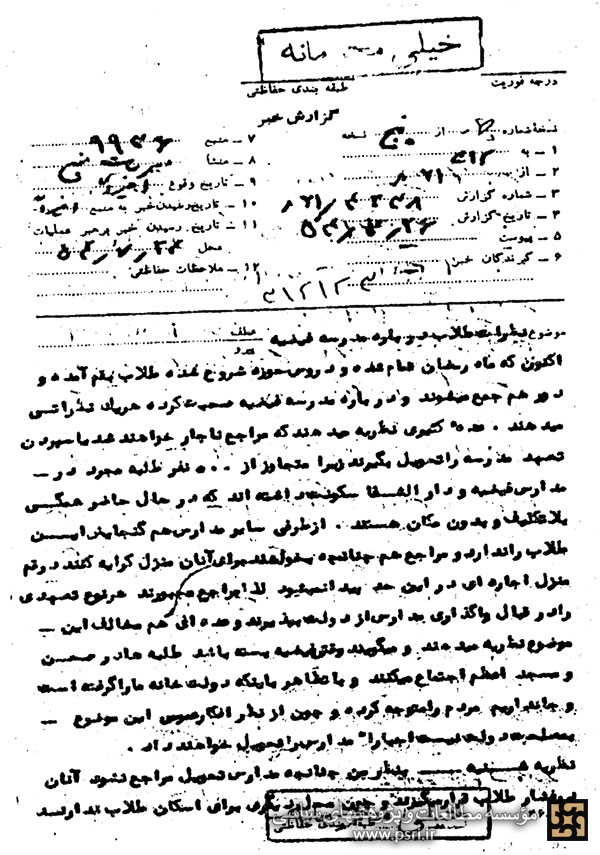 خیلی محرمانه
درجه فوریت
طبقه بندی حفاظتی
گزارش خبر
نسخه شماره از پنج نسخه
۱ ـ به
۲ ـ از
۳ ـ شماره گزارش
۴ ـ تاریخ گزارش
۵ ـ پیوست
۶ ـ گیرندگان خبر
۷ ـ منبع ۹۹۳۶
۸ ـ منشأ
۹ ـ تاریخ وقوع اخیراً
۱۰ ـ تاریخ رسیدن خبر به منبع اخیراً
۱۱ ـ تاریخ رسیدن خبر برهبر عملیات
محل
۱۲ ـ ملاحظات حفاظتی
۳۱۲۱۲
موضوع نظرات طلاب درباره مدرسه فیضیه
اکنون که ماه رمضان تمام شده و دروس حوزه شروع شده طلاب بقم آمده و
دور هم جمع میشوند و درباره مدرسه فیضیه صحبت کرده هریک نظراتی
میدهند . عده کثیری نظریه میدهند که مراجع ناچار خواهند شد با سپردن
تعهد مدرسه را تحویل بگیرند زیرا متجاوز از ۵۰۰ نفر طلبه مجرد در ــ
مدارس فیضیه و دار الشفا سکونت داشته اند که در حال حاضر همگی
بلاتکلیف و بدون مکان هستند . ازطرفی سایر مدارس هم گنجایش این
طلاب را ندارد و مراجع هم چنانچه بخواهند برای آنان منزل کرایه کنند در قم
منزل اجاره ای در این حد پیدا نمیشود لذا مراجع مجبورند هرنوع تعهدی
را در قبال واگذاری مدارس از دولت بپذیرند و عده ای هم مخالف این ــ
موضوع نظریه میدهند و میگویند وقتی فیضیه بسته باشد طلبه ها در صحن
و مسجد اعظم اجتماع میکنند و با تظاهر باینکه دولت خانه ما را گرفته است
و جا نداریم مردم را متوجه کرده و چون از نظر افکار عمومی این موضوع ــ
بمصلحت دولت نیست اجباراً مدارس را تحویل خواهند داد .
نظریه شنبه ــ بنظر من چنانچه مدارس تحویل مراجع نشود آنان
در فشار طلاب قرار میگیرند و چون محل دیگری برای اسکان طلاب ندارند
طبقه بندی حفاظتی
مؤسسه مطالعات و پژوهشهای سیاسی
www.psri.ir